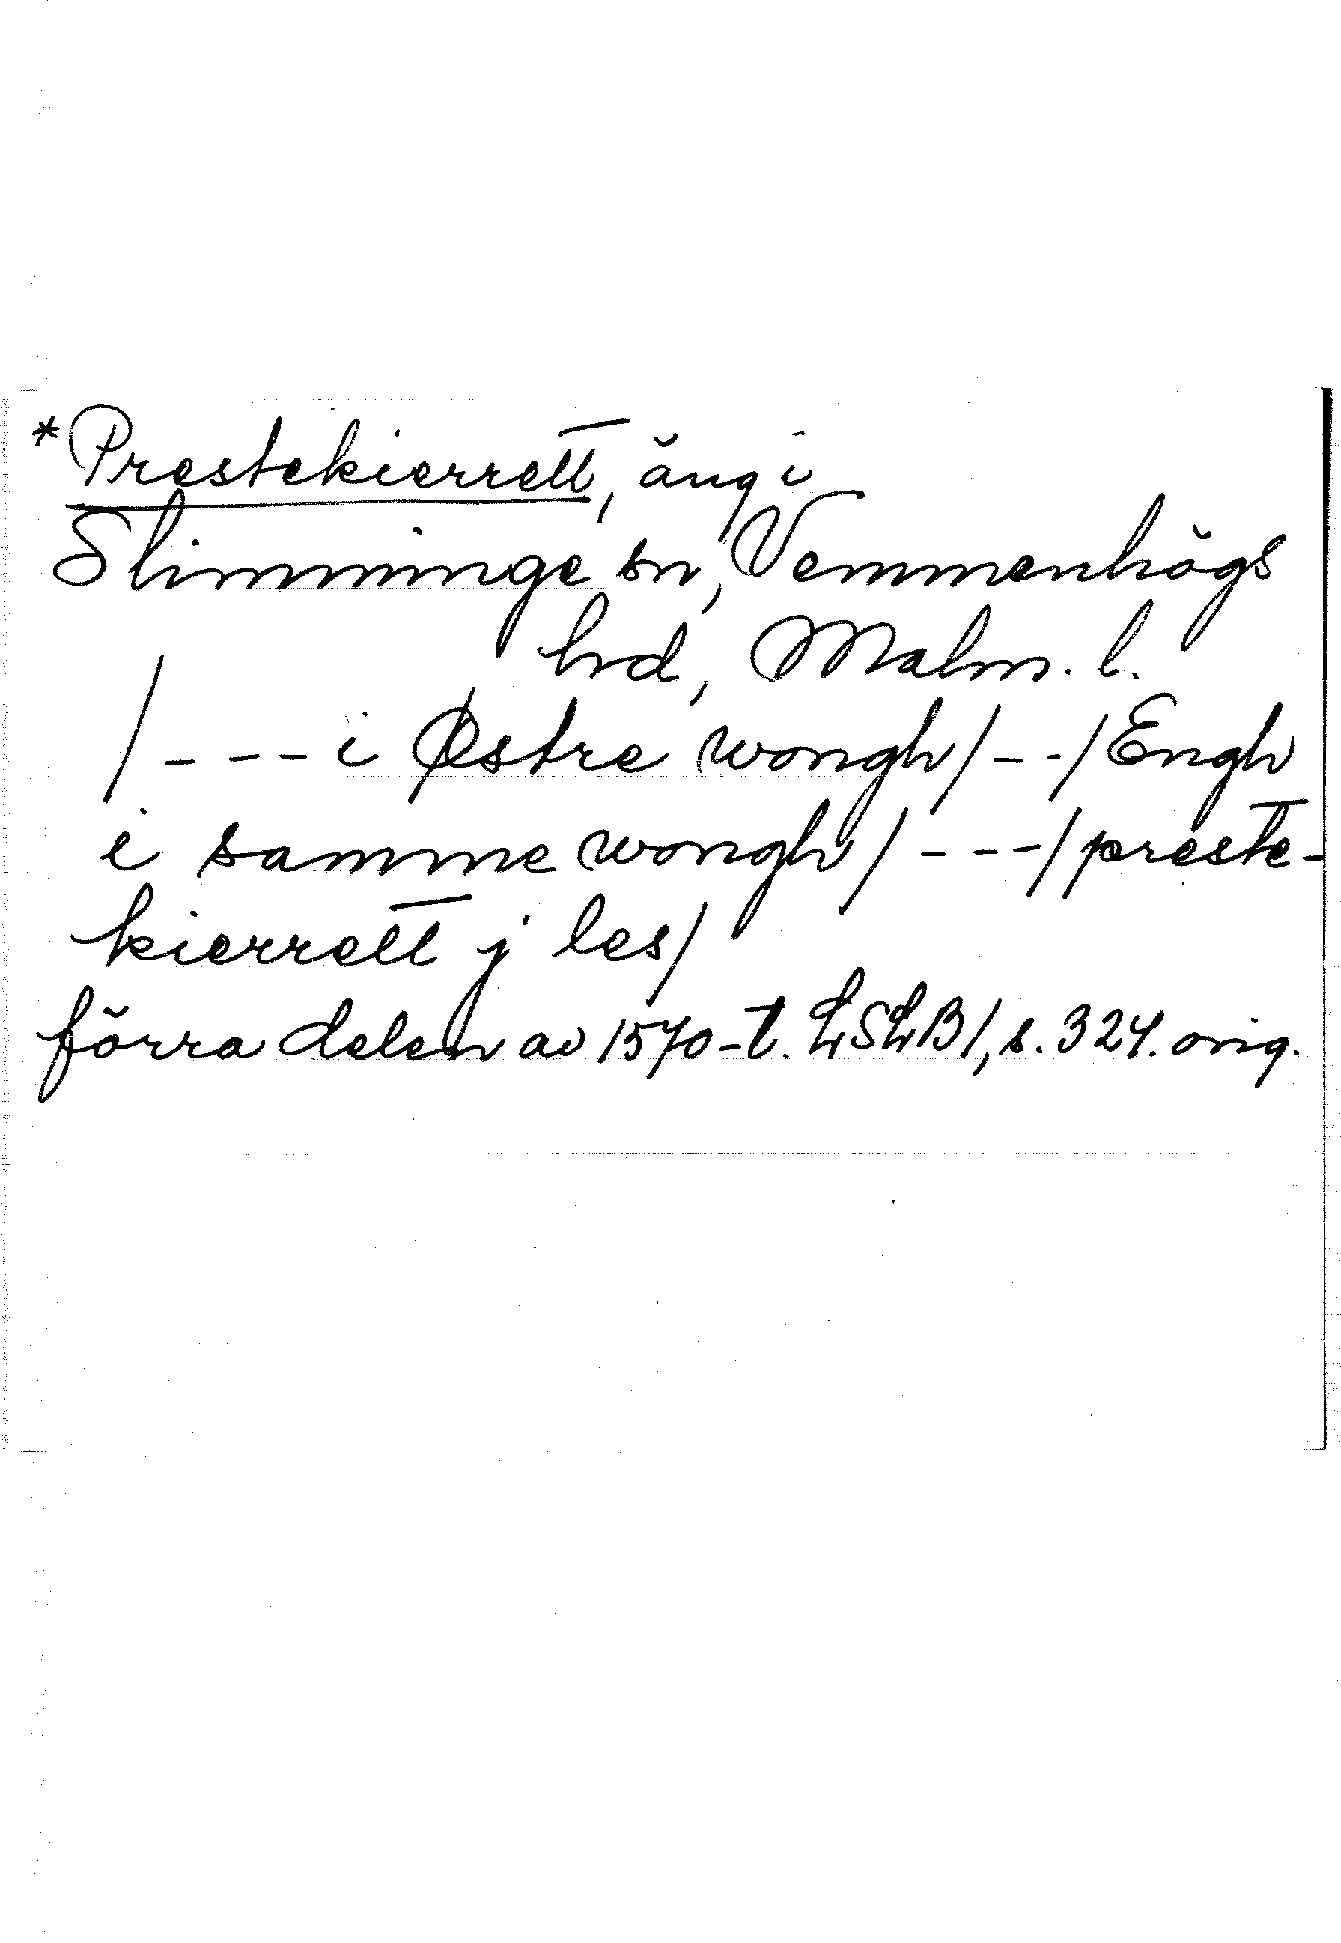 *Prestekierrett, äng i
Slimminge sn, Vemmenhögs
hrd, Malm. l.
/---i Østre wongh/--/Engh
i samme wongh/---/preste-
kierrett j les/
förra delen av 1570-t. LSLB1, s. 324. orig.